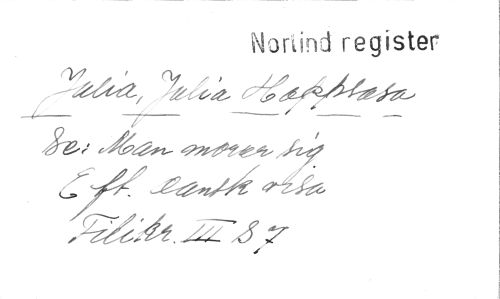 Norlind register
Julia, Julia Hoppsasa
Se: Man morar sig
Eft. dansk visa
Filikr. III S 7